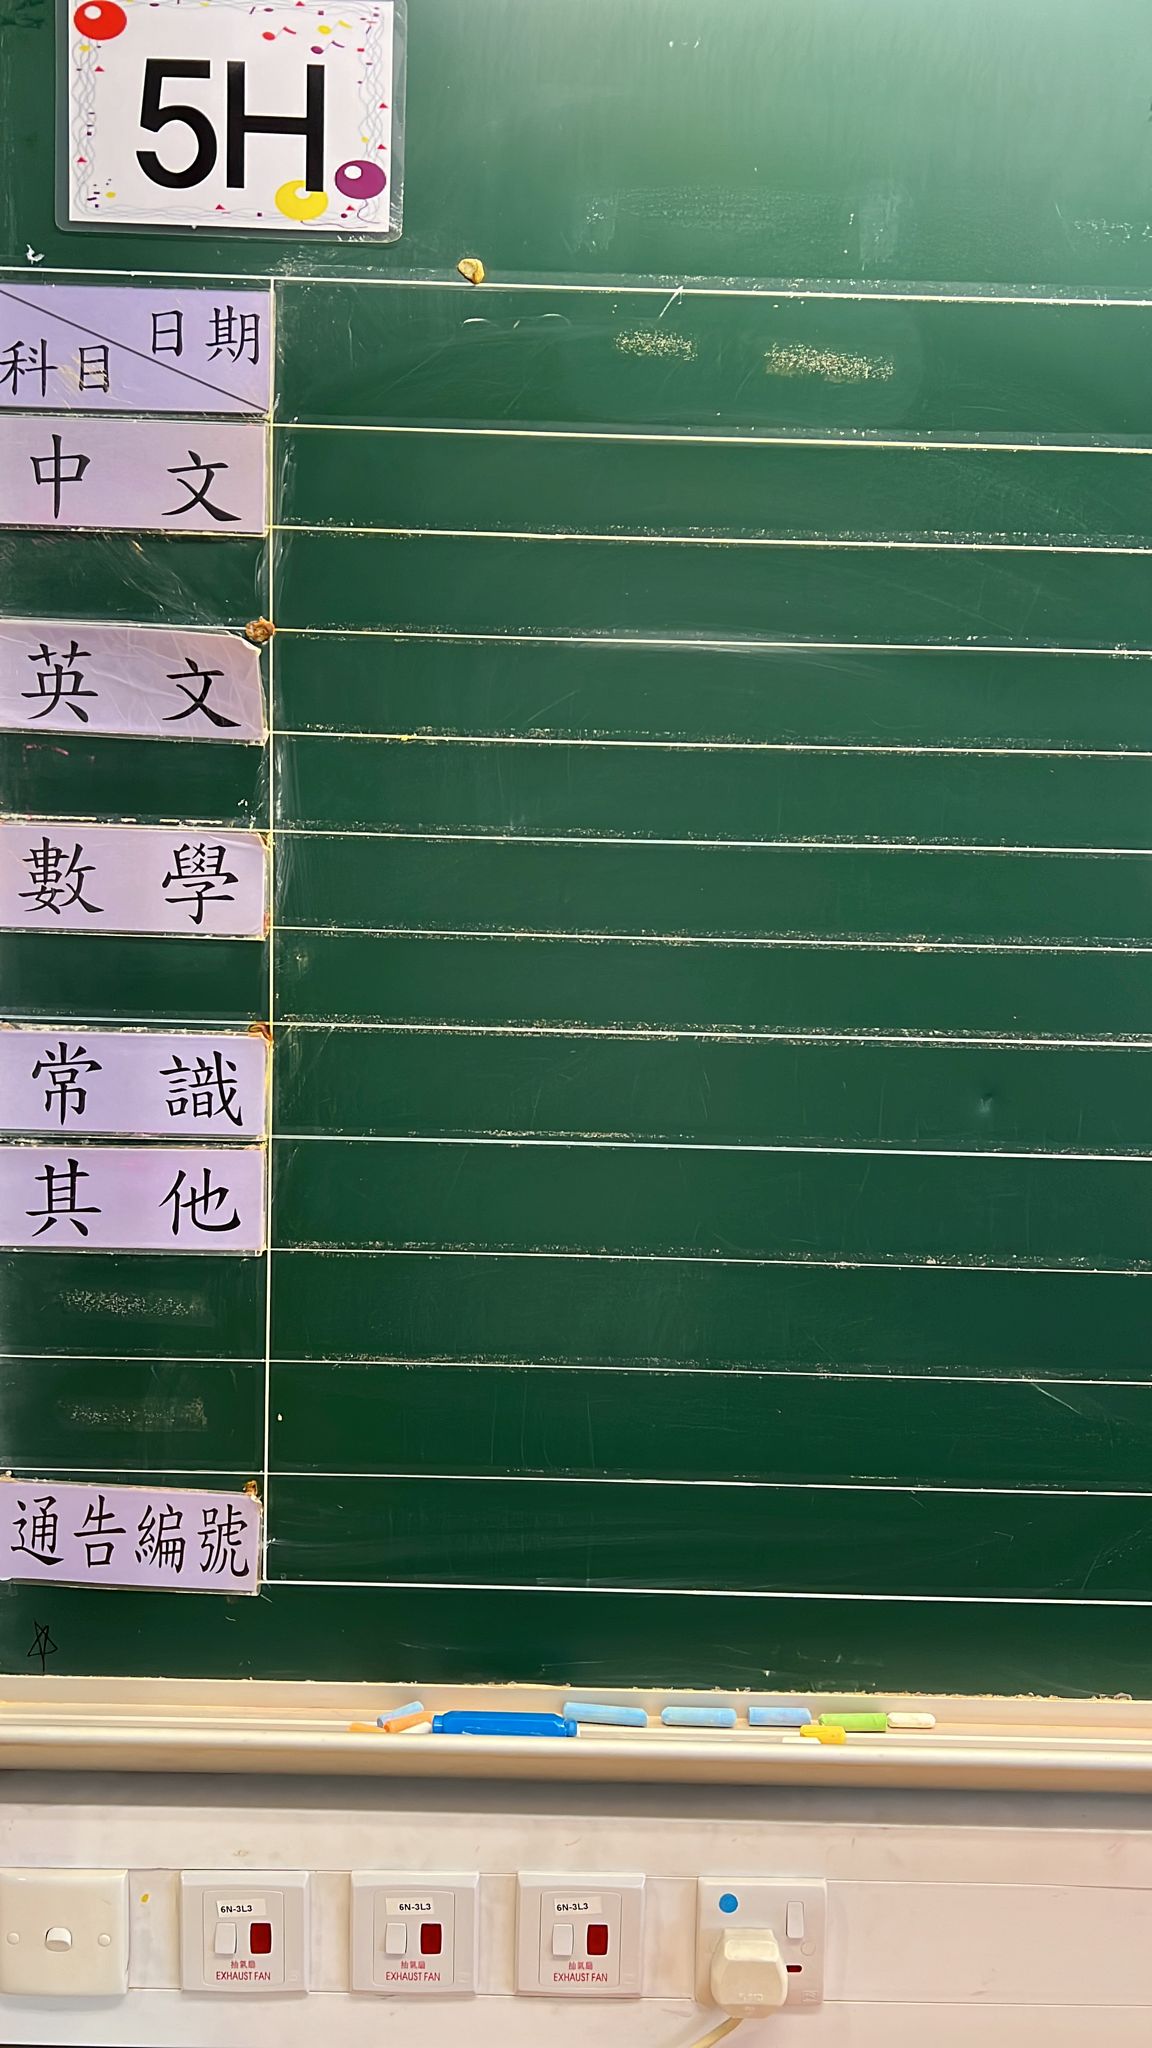 5H
日期
科目
中文
英文
數學
常識
其他
通告編號
6N-3L3
抽氣扇
EXHAUST FAN
6N-3L3
抽氣扇
EXHAUST FAN
6N-3L3
抽氣扇
EXHAUST FAN